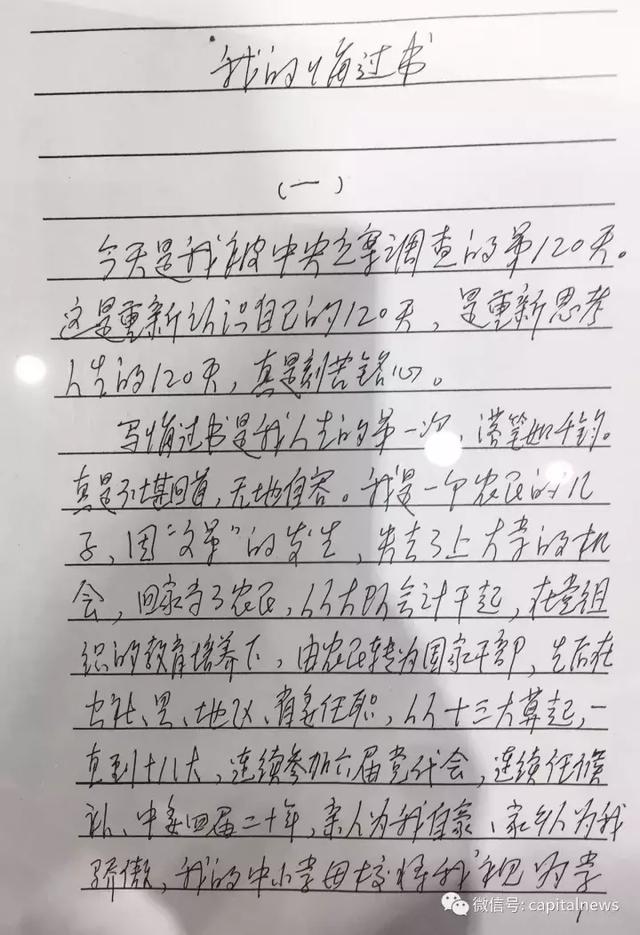 我的悔过书
(一)
今天是我被中央立案调查的第120天。
这是重新认识自己的120天，是重新思考
人生的120天，真是刻苦铭心。
写悔过书是我人生的第一次，落笔如千钧。
真是不堪回首，无地自容。我是一个农民的儿
子，因“文革”的发生，失去了上大学的机
会，回家当了农民，从大队会计干起，在党组
织的教育培养下，由农民转为国家干部，先后在
公社、县、地区、省委任职，从十三大算起，一
直到十八大，连续参加六届党代会，连续任候
补、中委四届二十年，亲人为我自豪、家乡人为我
骄傲，我的中小学母校将我视为学
微信号: capitalnews